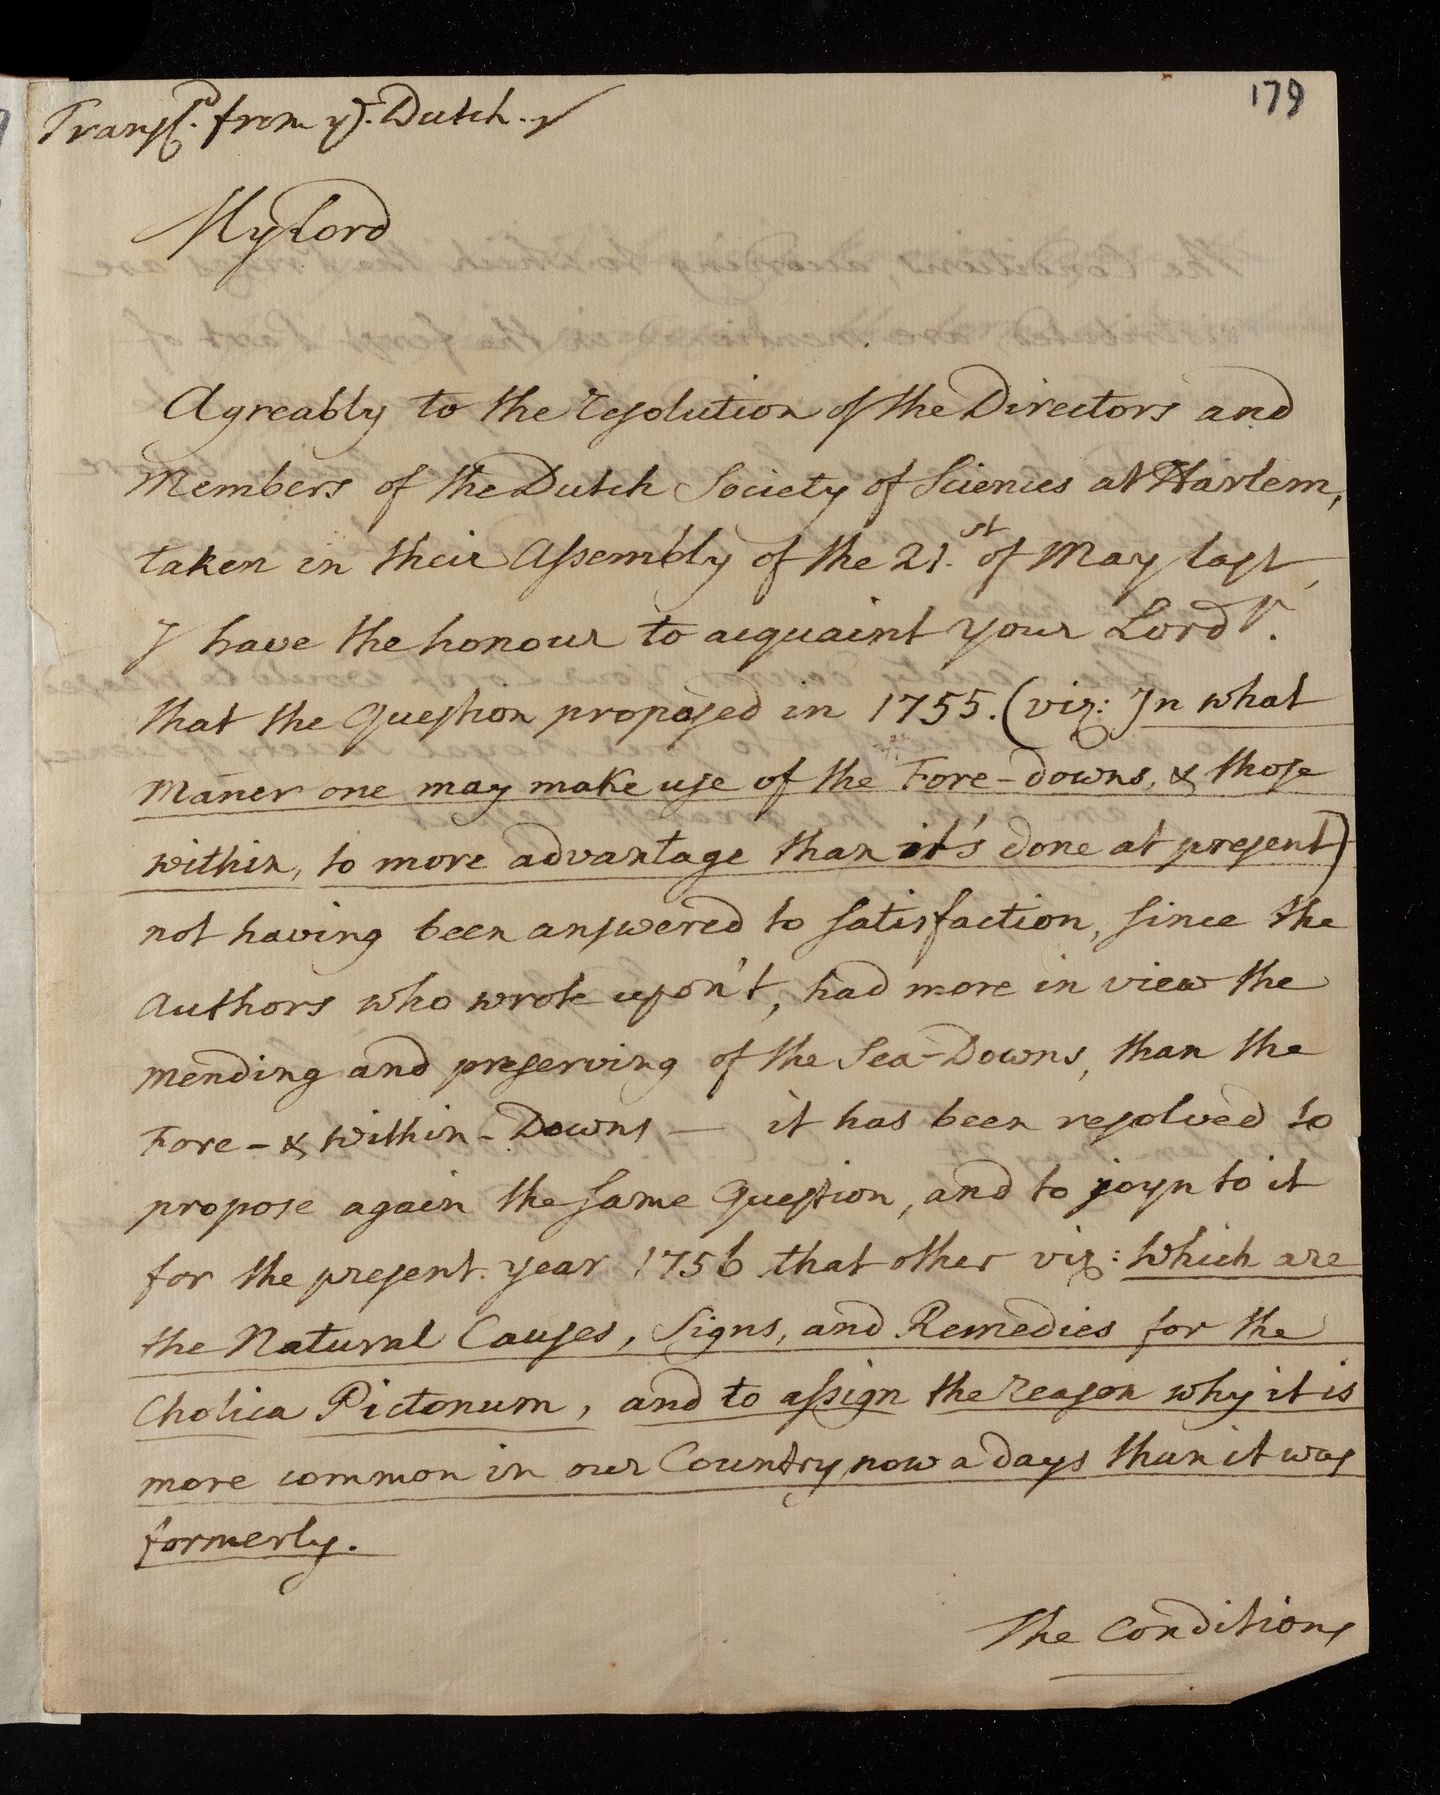 179
Transl.d from ye. Dutch.
My Lord
Agreably to the resolution of the Directors and
Members of the Dutch Society of Sciences at Harlem,
taken in their Assembly of the 21.st of May last,
I have the honour to acquaint your Lordp.
that the Question proposed in 1755. (viz: In what
Maner one may make use of the Fore-downs, & those
within, to more advantage than it's done at present)
not having been answered to satisfaction, since the
Authors who wrote upon't, had more in view the
mending and preserving of the Sea-Downs, than the
Fore- & within-Downs — it has been resolved to
propose again the same Question, and to joyn to it
for the present year 1756 that other viz: Which are
the Natural Causes, Signs, and Remedies for the
Cholica Pictonum, and to assign the reason why it is
more common in our Country now a days than it was
formerly.
The Conditions